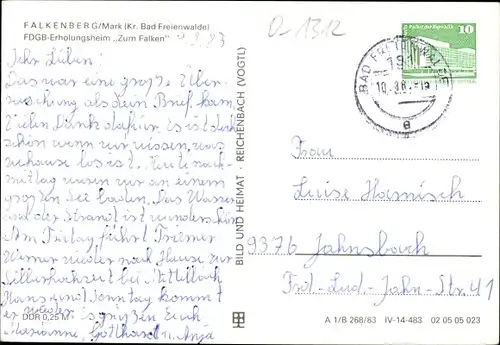 FALKENBERG/Mark (Kr. Bad Freienwalde)
FDGB-Erholungsheim „Zum Falken"
D-1312
9.8.83
Ihr Lieben!
Das war eine große Über-
raschung als dein Brief kam.
Vielen Dank dafür. Es ist doch
schön wenn wir wissen, was
zuhause los ist. Heute nach-
mittag waren wir an einem
großen See baden. Das Wasser
und der Strand ist wunderschön
Am Freitag fährt
Werner wieder nach Hause zur
Silberhochzeit bei
Hans und Sonntag kommt
er wieder. Es grüßen Euch
Marianne, Gotthard u. Anja
DDR 0,25 M
BILD UND HEIMAT · REICHENBACH (VOGTL)
BAD FREIENWALDE
131
10
Frau
Luise Harnisch
9376 Jahnsbach
Frd.-Lud.-Jahn-Str. 41
A 1/B 268/83 IV-14-483 02 05 05 023